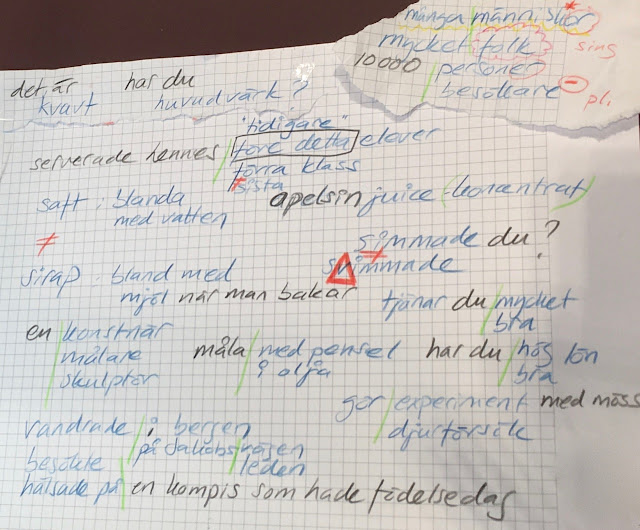 många människor *
mycket folk sing
10000 personer
besökare − pl.
det är har du
kvavt huvudvärk?
"tidigare"
serverade hennes före detta elever
förra klass
≠ sista
saft: blanda apelsinjuice (koncentrat)
med vatten
≠
simmade du?
≠
svimmade
sirap: bland med
mjöl när man bakar
tjänar du mycket
bra
en konstnär
målare
skulptör
måla med pensel
i olja
har du hög lön
bra
gör experiment med möss
djurförsök
vandrade i bergen
på Jakobsvägen
leden
besökte
hälsade på en kompis som hade födelsedag